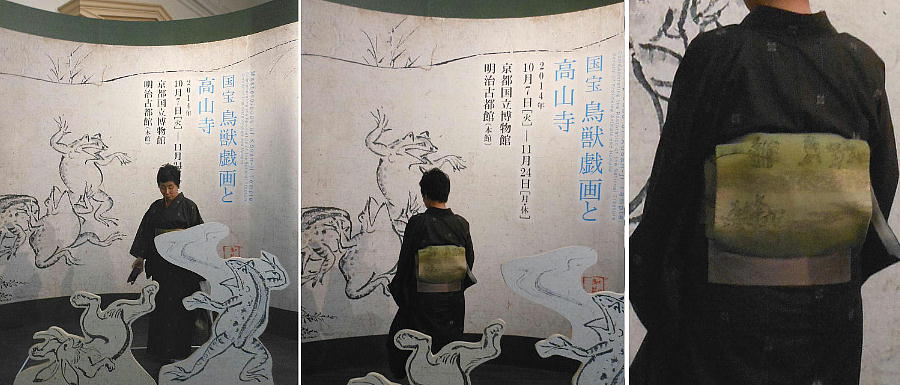 国宝 鳥獣戯画と
高山寺
2014年
10月7日[火]—11月
京都国立博物館
明治古都館(本館)
国宝 鳥獣戯画と
高山寺
2014年
10月7日[火]—11月24日[月・休]
京都国立博物館
明治古都館(本館)